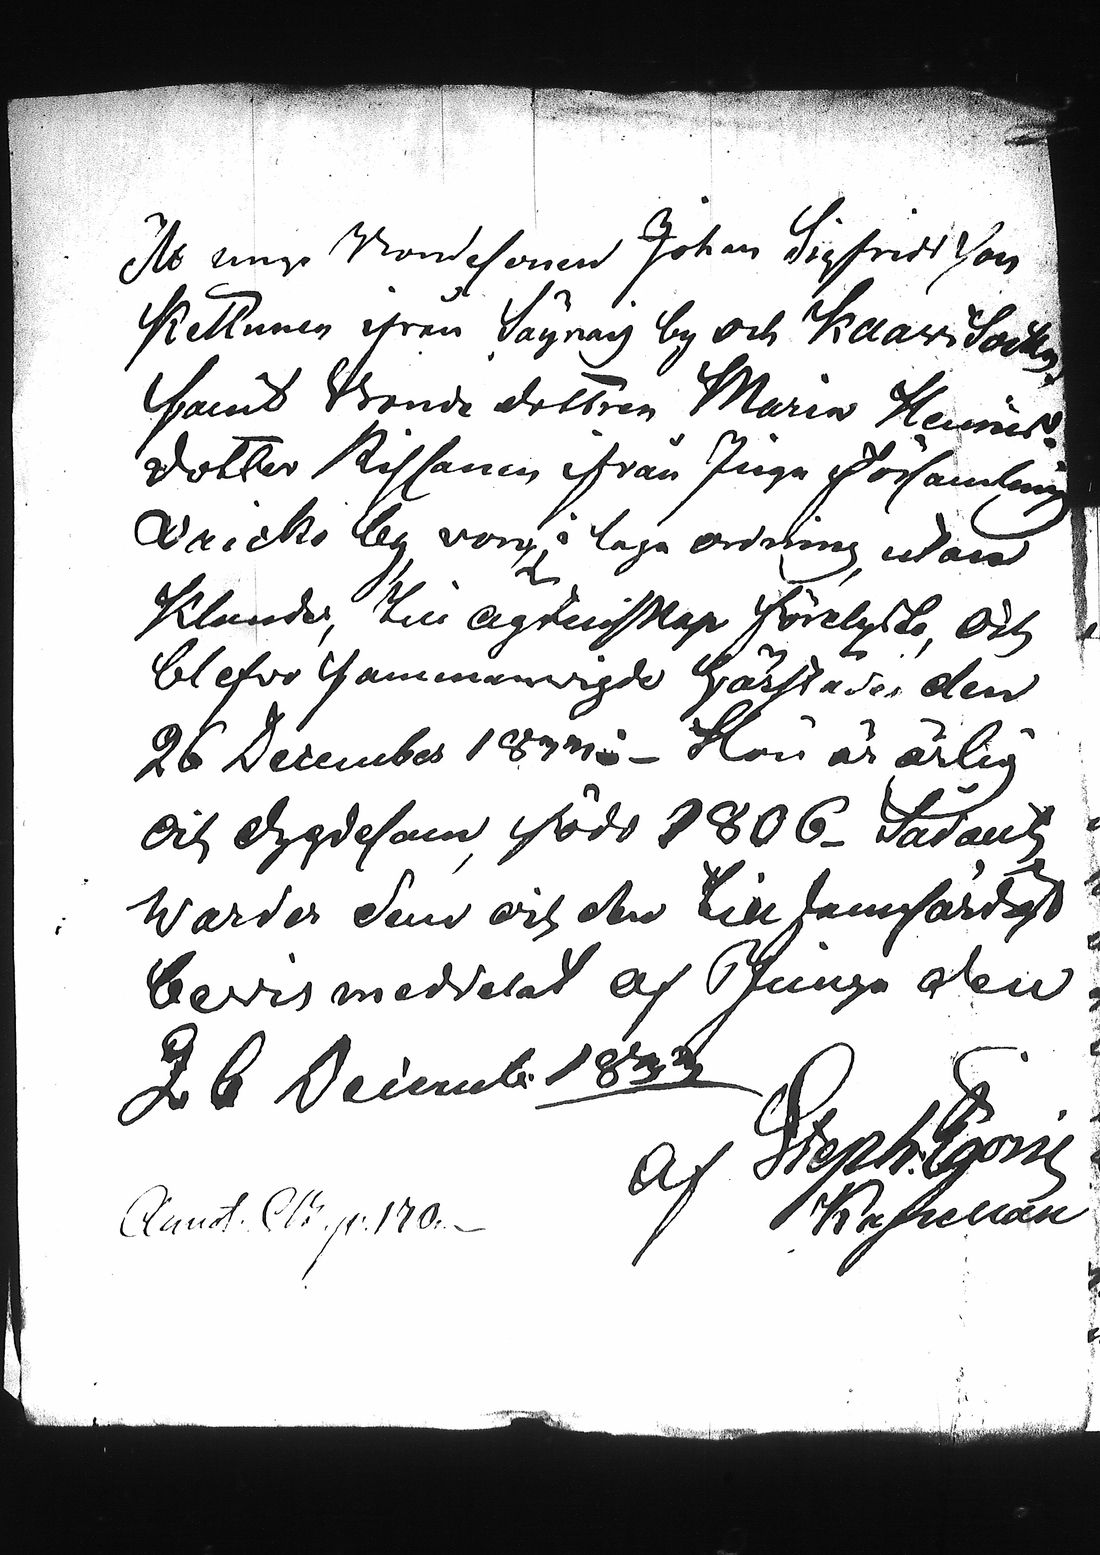 At unge Bondesonen Johan Sigfridsson
Kettunen ifrån Säynäis by och Kaavi Socken,
samt Bonde dottren Maria Henrics-
dotter Rissanen ifrån Juga Församling
by, i laga ordning, utan
Klander, till ägtenskap förelyste, och
blefvo sammanvigde härstädes den
26 December 1833 – Hon är ärlig
och dygdesam, född 1806 – Sådant
warder dem och den till sannfärdigt
bevis meddelat af Juuga den
26 Decemb. 1833
af Steph.
Kapellan
Annot. p. 170. –